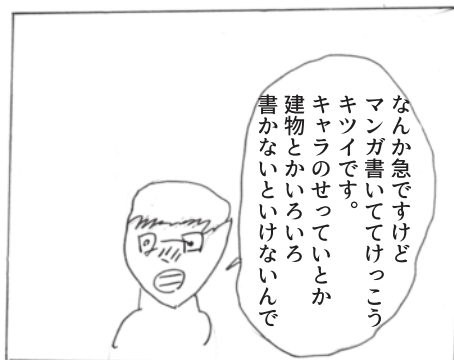 なんか急ですけど
マンガ書いててけっこう
キツイです。
キャラのせっていとか
建物とかいろいろ
書かないといけないんで